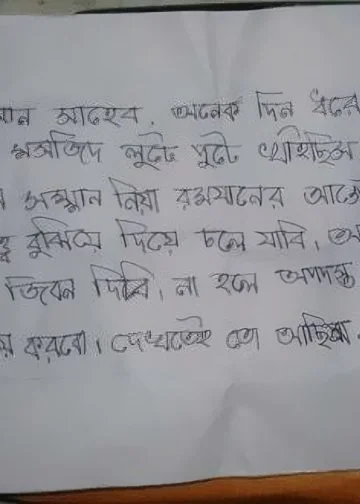 সাহেব, অনেক দিন ধরে
মসজিদে লুটে পুটে খাইছিস
সম্মান নিয়া রমযানের আগে
বুঝিয়ে দিয়ে চলে যাবি,
জিবন দিবি, না হলে অপদস্ত
করবো। দেখতেই তো আছিস.